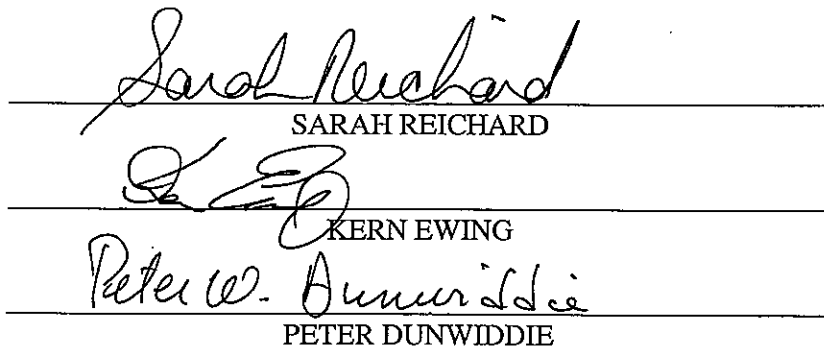 Sarah Reichard
SARAH REICHARD
KERN EWING
Peter W. Dunwiddie
PETER DUNWIDDIE